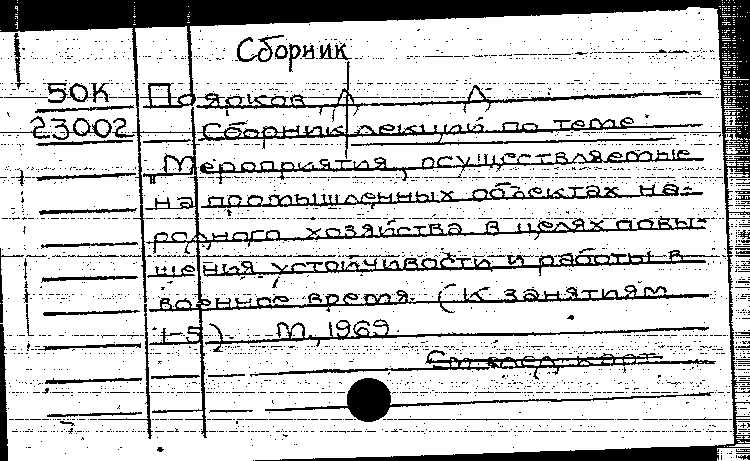 Сборник
50К Поярков, А Д
23002 Сборник лекций по теме:
"Мероприятия, осуществляемые
на промышленных объектах на-
родного хозяйства в целях повы-
шения устойчивости и работы в
военное время. (К занятиям
1-5). М., 1969
См. след. карт.